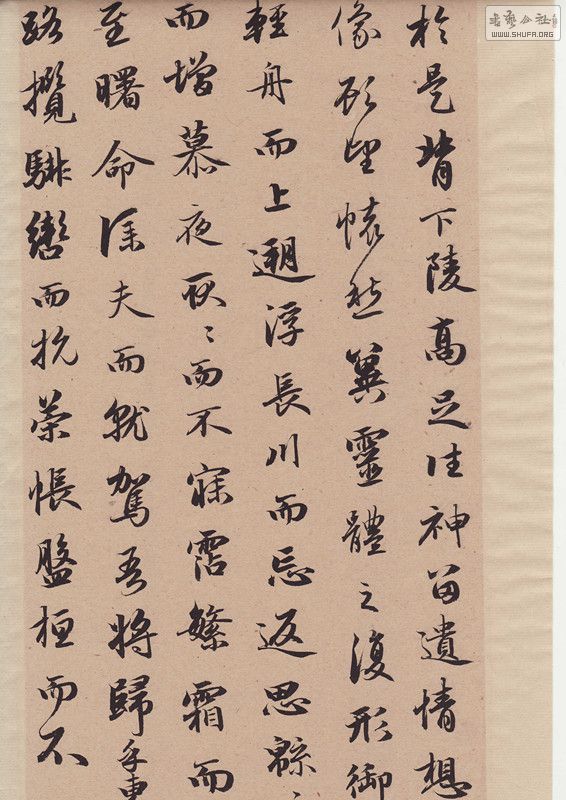 於是背下陵高足往神留遺情想
像顧望懷愁冀靈體之復形御
輕舟而上遡浮長川而忘返思緜々
而增慕夜耿々而不寐霑繁霜而
至曙命僕夫而就駕吾將歸乎東
路攬騑轡而抗策悵盤桓而不
書藝公社
WWW.SHUFA.ORG